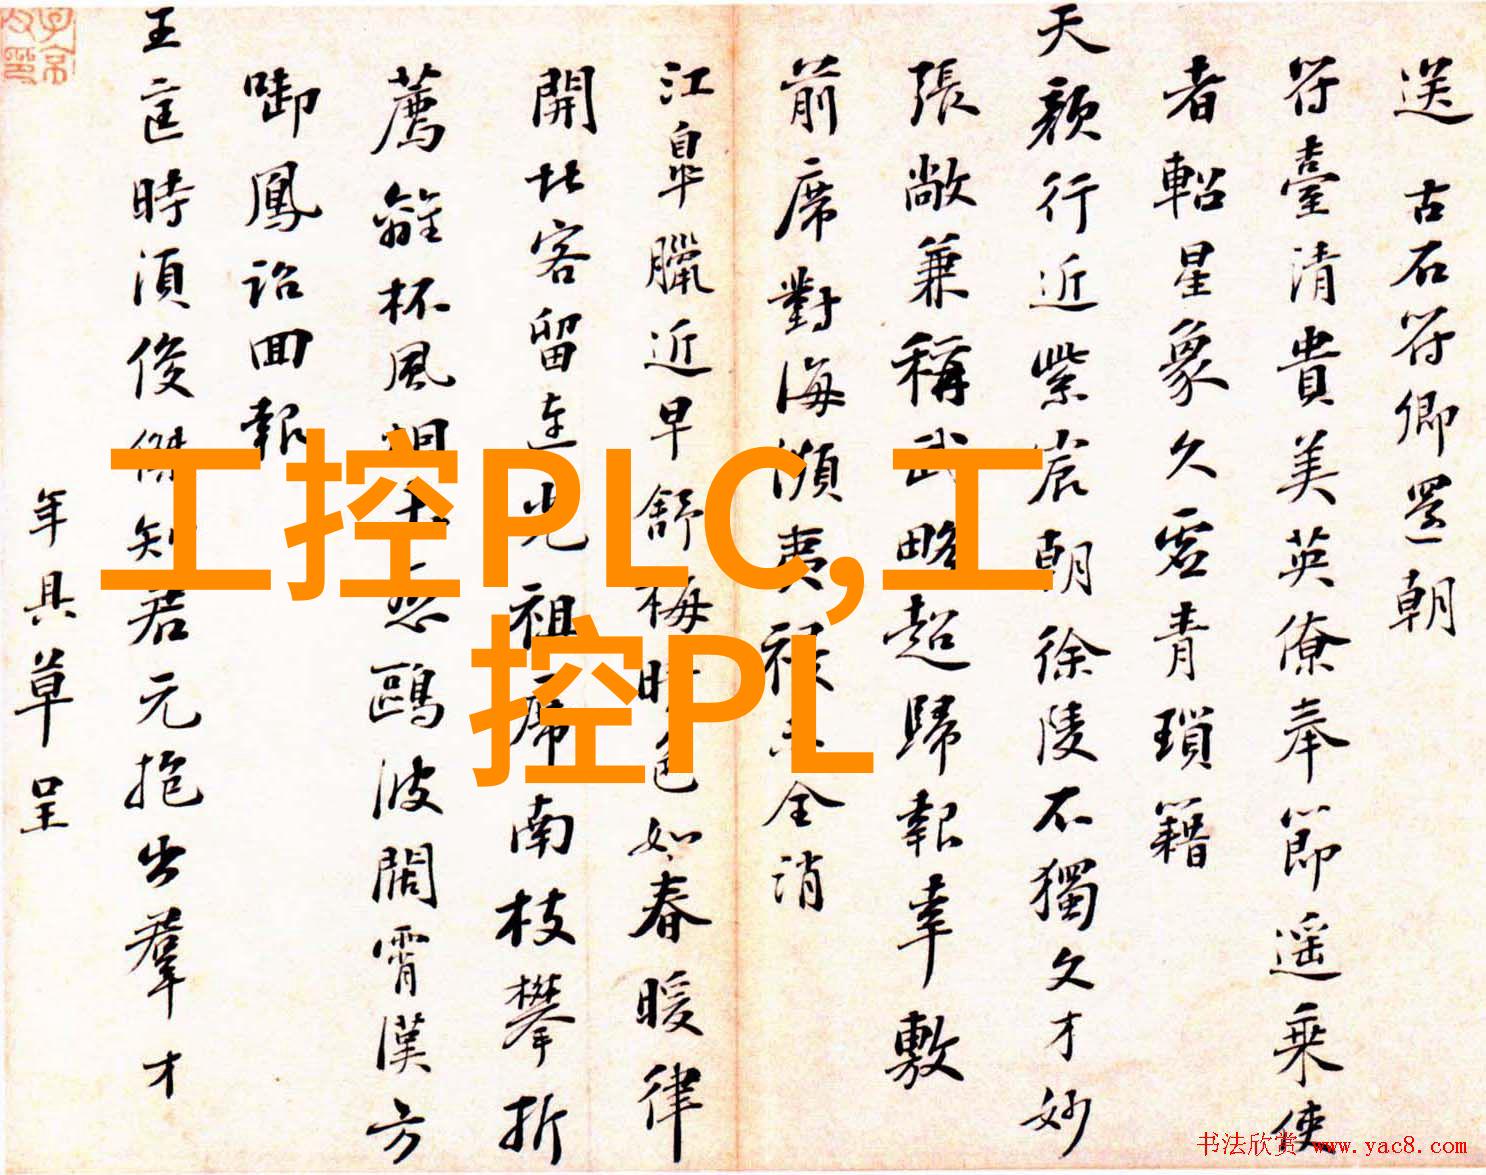 送 古石符卿還朝
符臺清貴美英僚奉節遥乘使
者軺星象久虛青瑣籍
天顏行近紫宸朝徐陵不獨文才妙
張敞兼稱武略超歸報幸敷
前席對海瀕夷祲全消
江皐臘近早舒梅晴色如春暖律
開北客留連祖席南枝攀折
薦離杯風鷗波闊霄漢方
啣鳳詔回報
王 時須俊傑知君元抱出羣才
年具草呈
工控PLC,工
控PL
书法欣赏 www.yac8.com